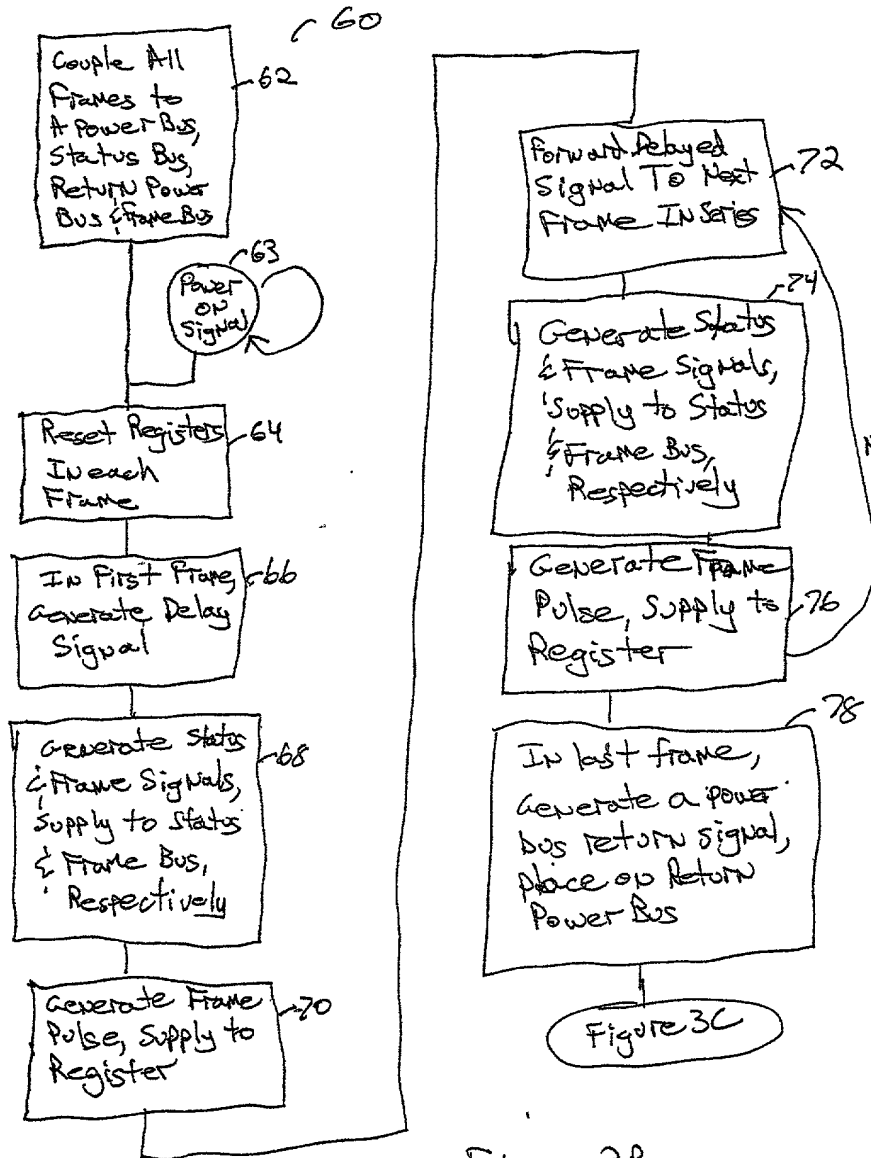 60
Couple All
Frames to
A Power Bus,
Status Bus,
Return Power
Bus & Frame Bus
62
63
Power
on
Signal
Reset Registers
In each
Frame
64
In First Frame,
Generate Delay
Signal
66
Generate Status
& Frame Signals,
Supply to Status
& Frame Bus,
Respectively
68
Generate Frame
Pulse, Supply to
Register
70
Forward Delayed
Signal To Next
Frame In Series
72
Generate Status
& Frame Signals,
Supply to Status
& Frame Bus,
Respectively
74
Generate Frame
Pulse, Supply to
Register
76
In last frame,
Generate a power
bus return signal,
place on Return
Power Bus
78
Figure 3C